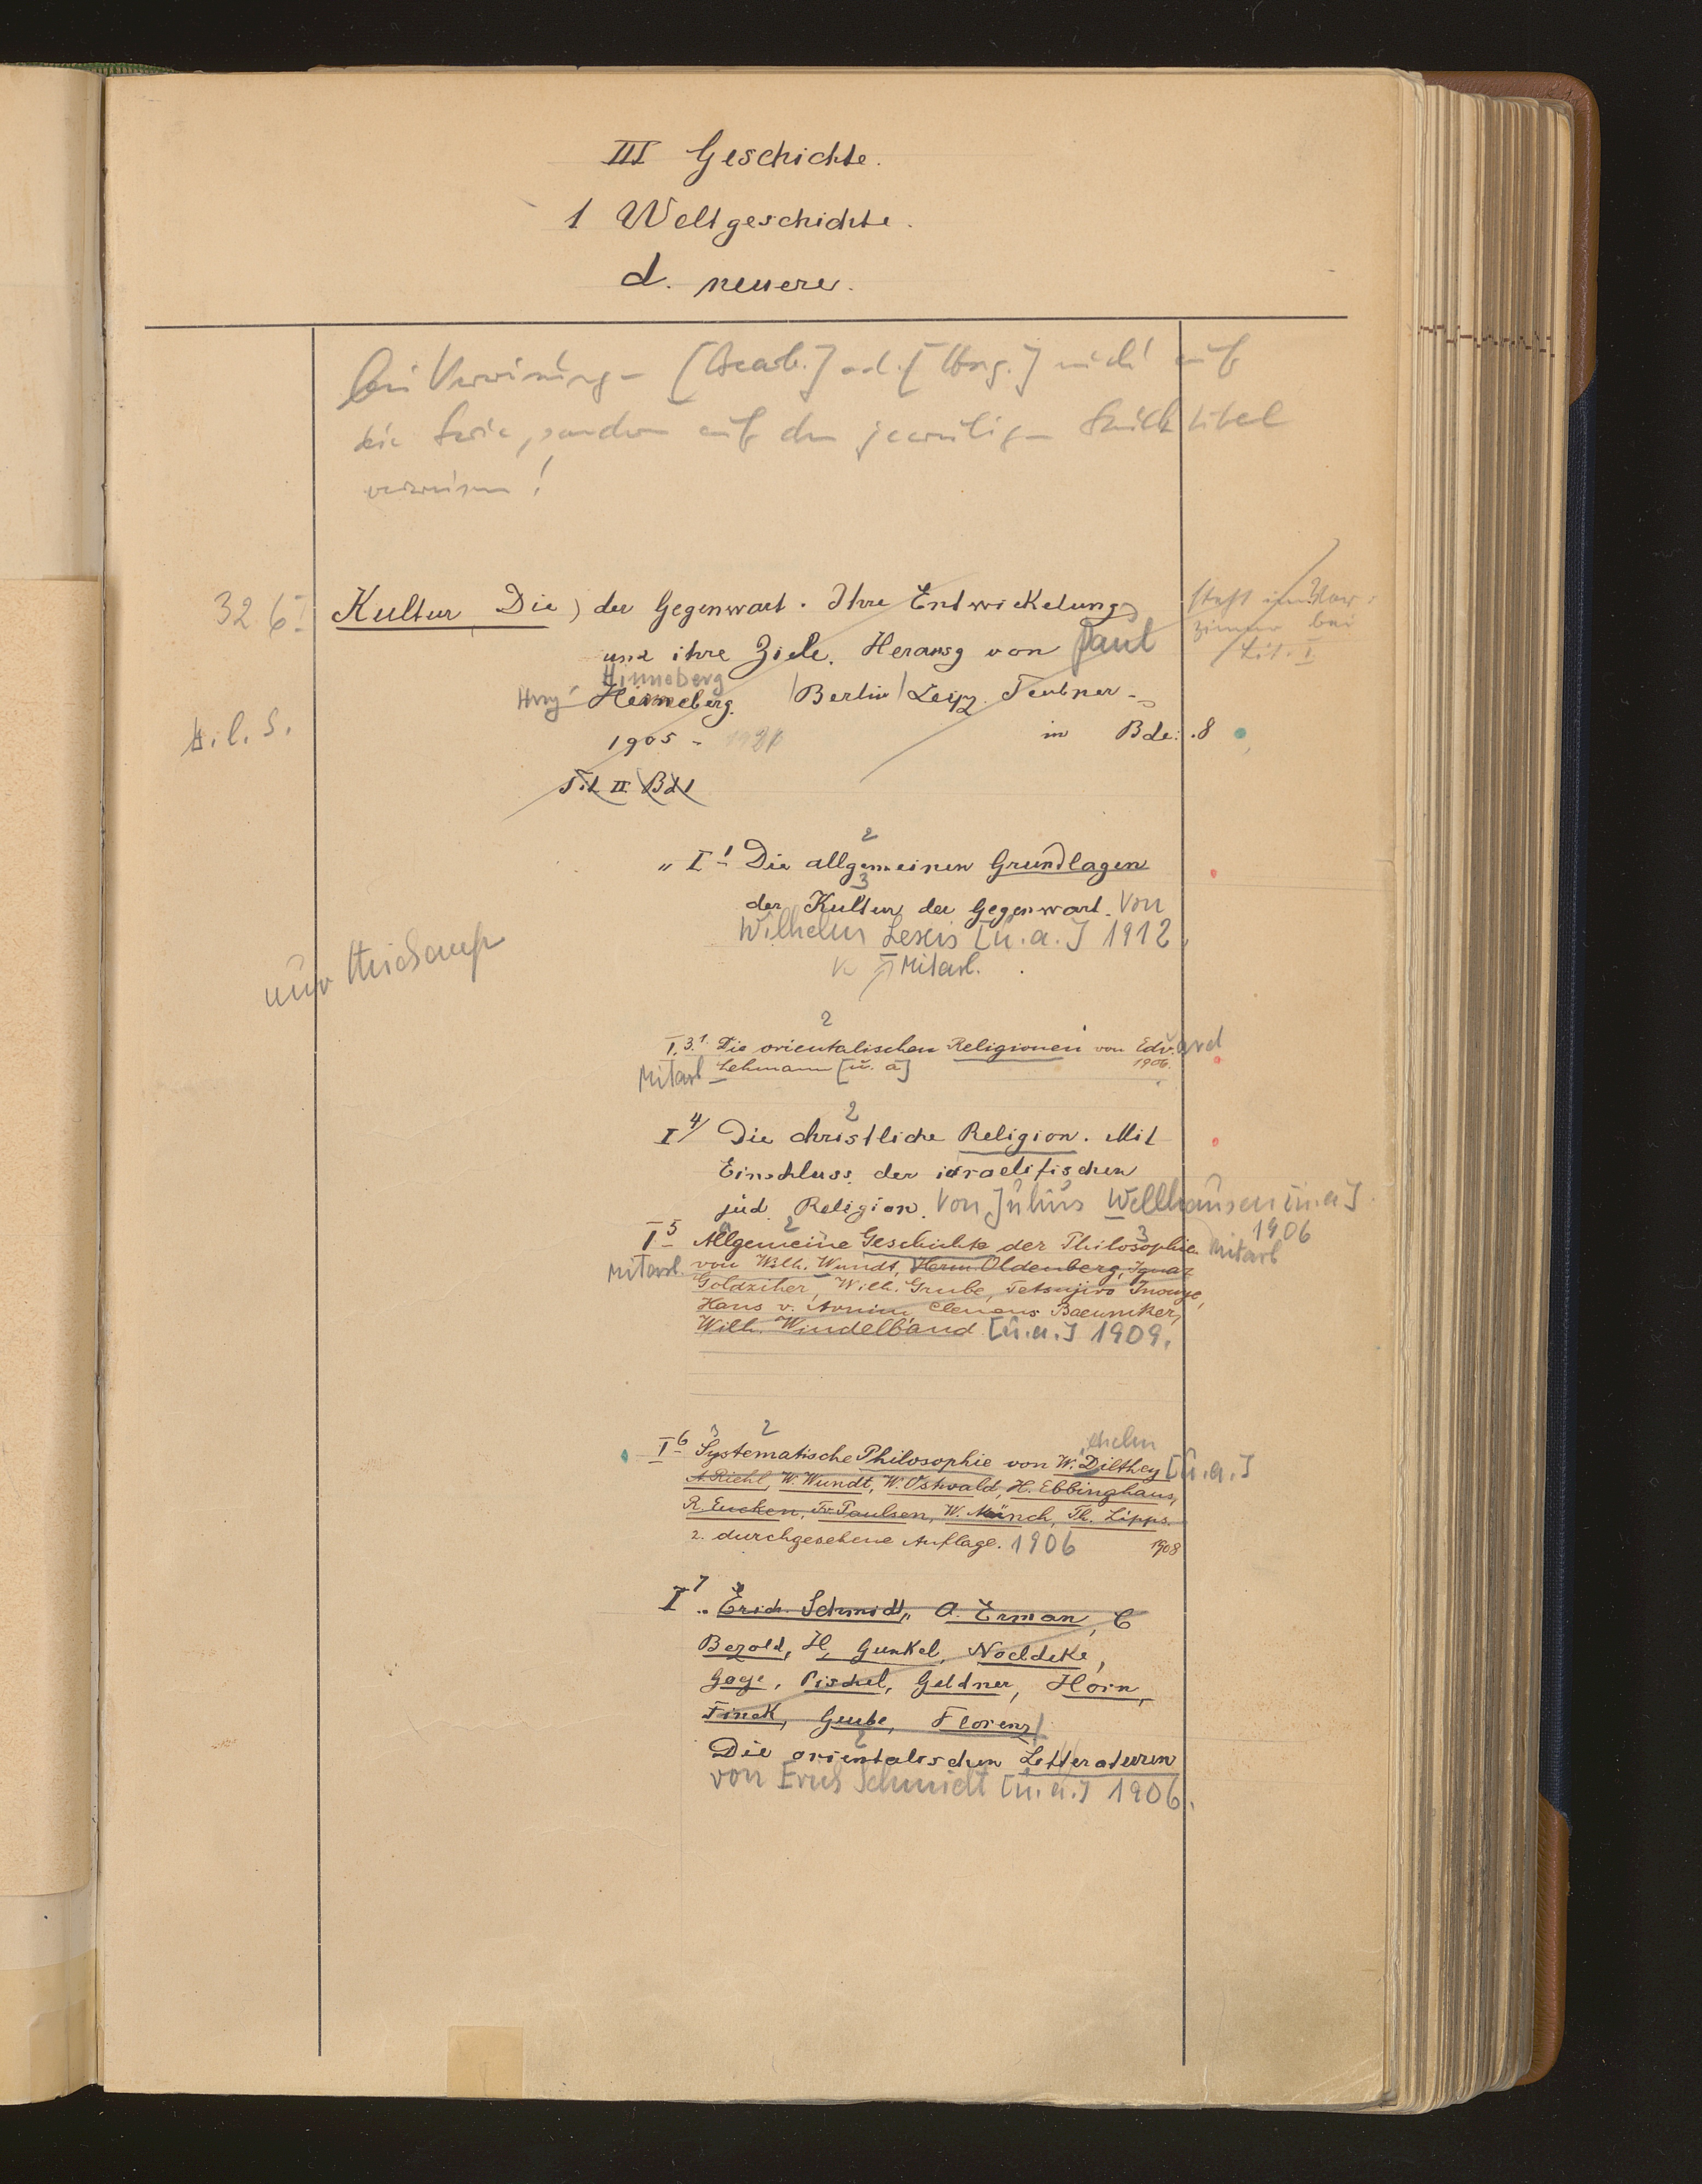 III Geschichte.
1 Weltgeschichte.
d. neuere.
Bei Verweisung [Bearb.] od. [Hrsg.] nicht auf
die Serie, sondern auf den jeweiligen Stücktitel
verweisen!
32.6 I
Kultur, Die, der Gegenwart. Ihre Entwickelung
und ihre Ziele. Herausg von Paul
Hinneberg
Hrsg Heinneberg. Berlin Leipz. Teubner
1905 -
in Bde. 8
Teil II Bd 1
steht im Vor-
zimmer bei
Lit. I
H. l. S.
2
" I 1 Die allgemeinen Grundlagen
3
der Kultur der Gegenwart. Von
Wilhelm Lexis [u.a.] 1912
Mitarb.
2
I,3.1 Die orientalischen Religionen von Eduard
Mitarb Lehmann [u. a] 1906.
2
I 4 Die christliche Religion. Mit
Einschluss der israelitischen
jüd. Religion. Von Julius Wellhausen [u.a]
1906
Mitarb
2 3
I 5 Allgemeine Geschichte der Philosophie
Mitarb. von Wilh. Wundt, Herm Oldenberg, Ignaz
Goldziher, Wilh. Grube, Tetsujiro Inouye,
Hans v. Arnim, Clemens Baeumker,
Wilh. Windelband [u.a.] 1909.
2
I 6 Systematische Philosophie von W. Dilthey [u.a.]
A. Riehl, W. Wundt, W. Ostwald, H. Ebbinghaus,
R. Eucken, Fr. Paulsen, W. Münch, Th. Lipps.
2. durchgesehene Auflage. 1906 1908
I 7 " Erich Schmidt, A. Erman, C
Bezold, H, Gunkel, Noeldeke,
Goge, Pischel, Geldner, Horn,
Finck, Grube, Florenz
2
Die orientalischen Letteraturen
von Erich Schmidt [u.a.] 1906.